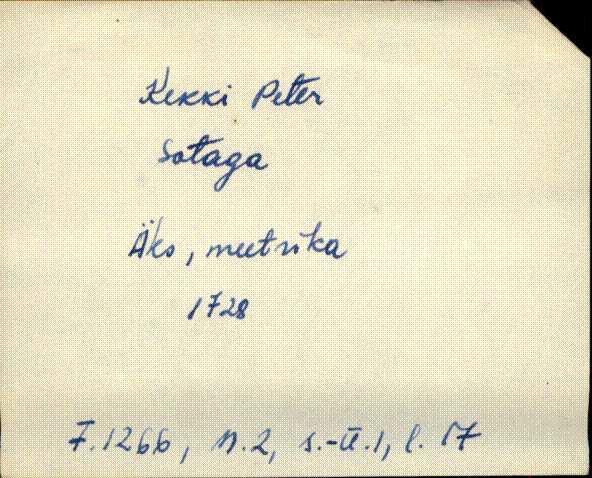 Kekki Peter
Sotaga
Äks, meetrika
1728
F.1266, n.2, s.-ü.1, l. 17